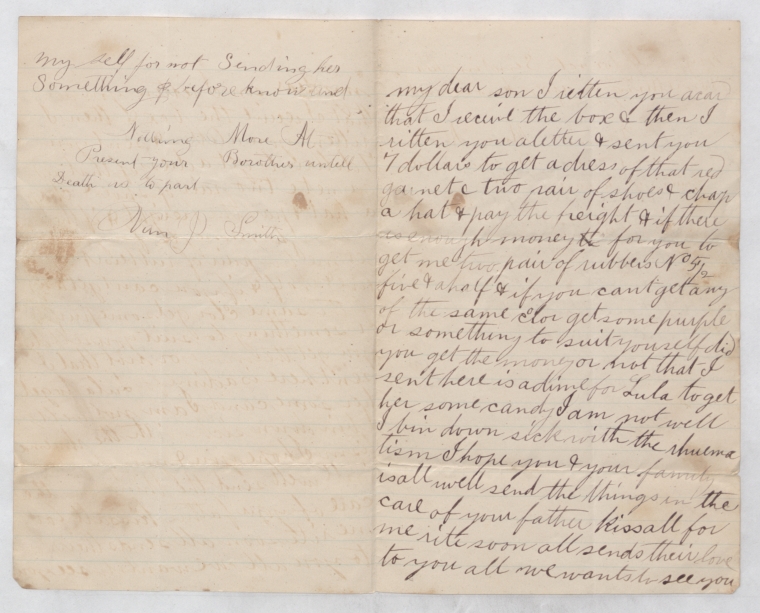 my self for not Sending her
Something & before know and
Nothing More At
Present your Borother untell
Death us to part
Wim P Smith
my dear son I ritten you
that I receive the box & then I
ritten you a letter & sent you
7 dollars to get a dress of that red
garnet & two pair of shoes & chap
a hat & pay the freight & if there
is enough money for you to
get me two pair of rubbers No 5 1/2
five & a half & if you cant get any
of the same clor get some purple
or something to suit yourself did
you get the money or not that I
sent here is a dime for Lula to get
her some candy I am not well
I bin down sick with the rhuema
tism I hope you & your family
is all well send the things in the
care of your father kiss all for
me rite soon all sends their love
to you all we wants to see you